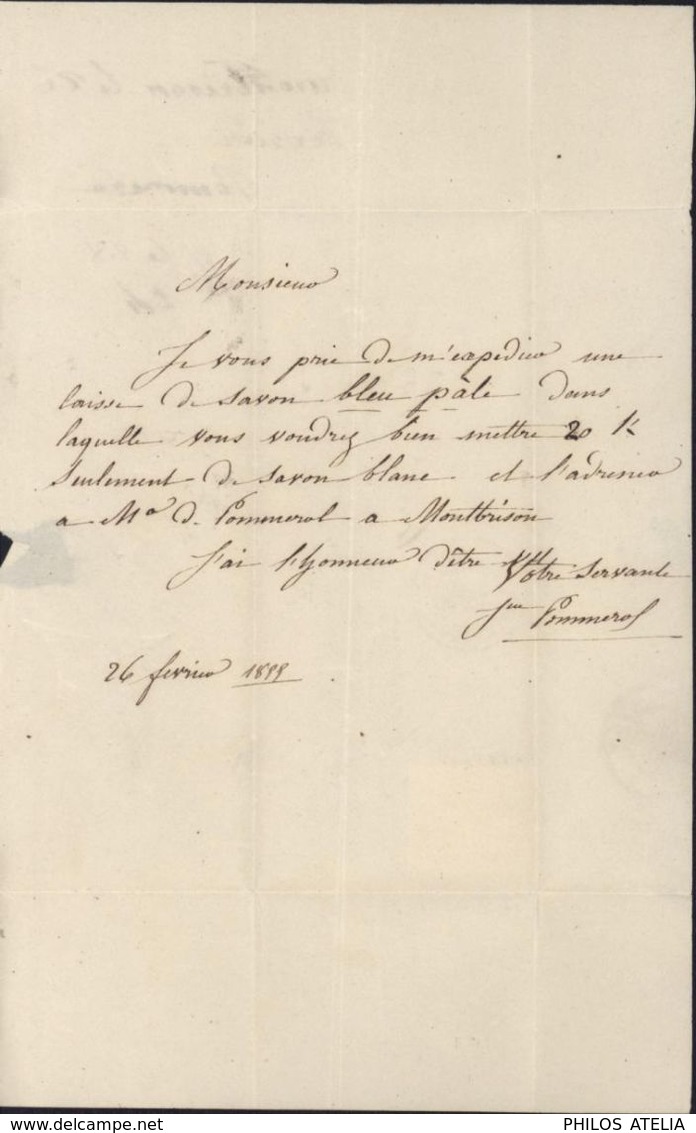 Monsieur
Je vous prie de m'expedier une
caisse de savon bleu pâle dans
laquelle vous voudrez bien mettre 20 K
seulement de savon blanc et l'adresser
a Me de Pommerol a Montbrison
J'ai l'honneur d'être Votre servante
Pommerol
26 fevrier
PHILOS ATELIA